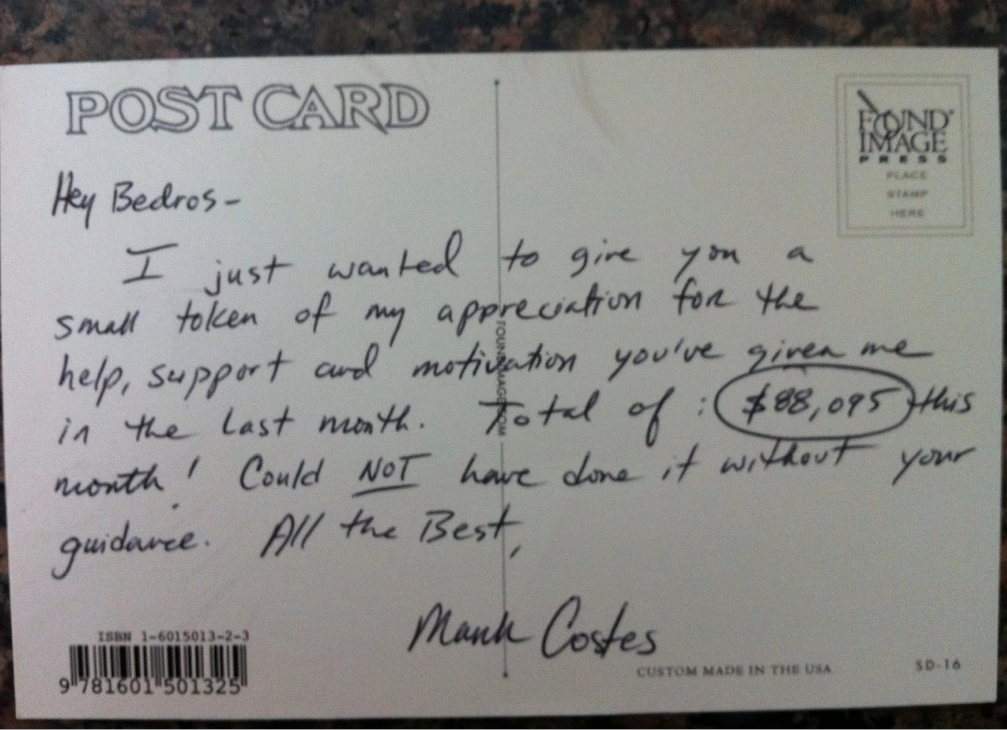 POST CARD
FOUND
IMAGE
PRESS
PLACE
STAMP
HERE
Hey Bedros-
I just wanted to give you a
small token of my appreciation for the
help, support and motivation you've given me
in the last month. Total of : $88,095 this
month! Could NOT have done it without your
guidance. All the Best,
Mark Costes
ISBN 1-6015013-2-3
9 781601 501325
CUSTOM MADE IN THE USA
SD-16